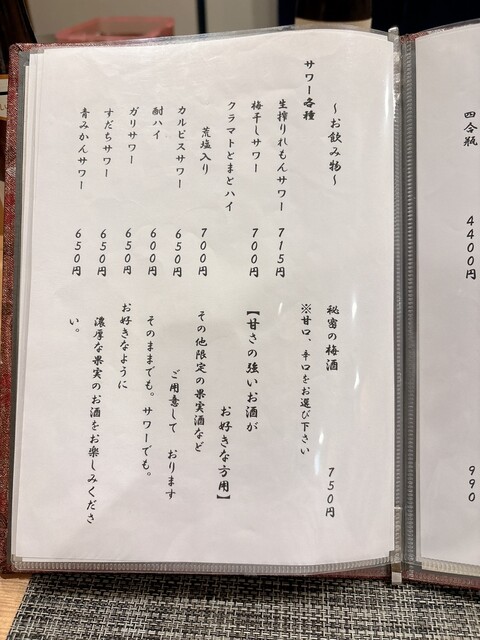 四合瓶 4400円
990
〜お飲み物〜
サワー各種
生搾りれもんサワー 715円
梅干しサワー 700円
クラマトとまとハイ
荒塩入り 700円
カルピスサワー 650円
酎ハイ 600円
ガリサワー 650円
すだちサワー 650円
青みかんサワー 650円
秘密の梅酒 750円
※甘口、辛口をお選び下さい
【甘さの強いお酒が
お好きな方用】
その他限定の果実酒など
ご用意して おります
そのままでも。サワーでも。
お好きなように
濃厚な果実のお酒をお楽しみくださ
い。